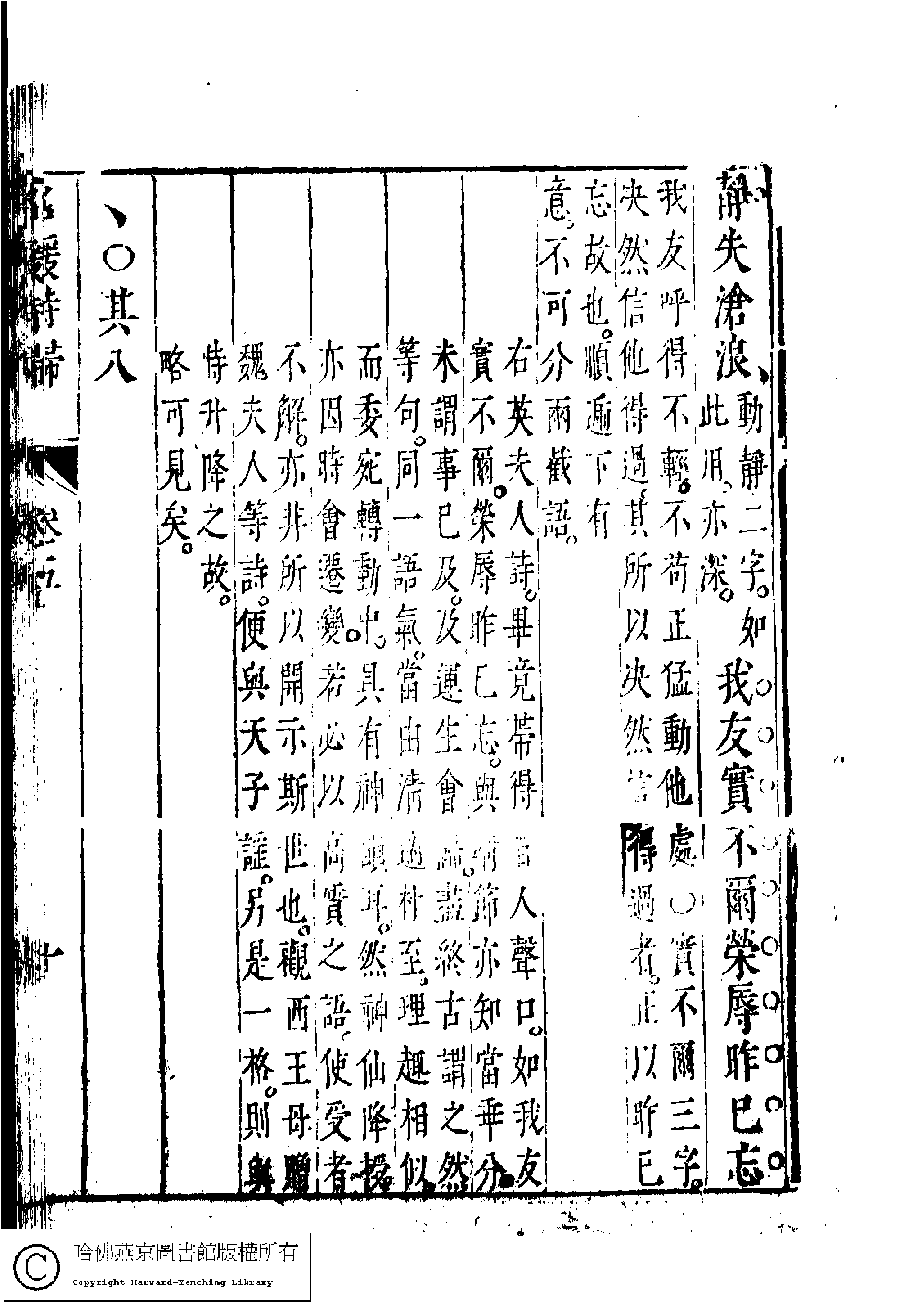 靜失滄浪、動靜二字。如此用。亦深。我友實不爾榮辱昨已忘
我友呼得不輕。不荷正猛動他處〇實不爾三字。
決然信他得過。其所以決然信得過者。正以昨已
忘故也。順遞下有
意。不可分兩截語。
右英夫人詩。畢竟帶得 人聲口。如我友
實不爾。榮辱昨已忘。與 節亦知當垂分。
未謂事已及。及運生會 盡終古謂之然
等句。同一語氣。當由清 至。理趣相似。
而委宛轉動出。具有神 耳。然神仙降授
亦因時會遷變。若必以高實之語。使受者
不解。亦非所以開示斯世也。觀西王母贈
魏夫人等詩。便與天子謠。另是一格。則與
時升降之故。
略可見矣。
、〇其八
詩歸 卷五 十
哈佛燕京圖書館版權所有
Copyright Harvard-Yenching Library